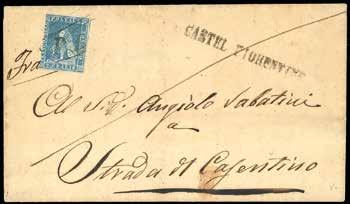 CASTEL FIORENTINO
Fra
Al Sig. Angiolo Sabatini
a
Strada di Casentino